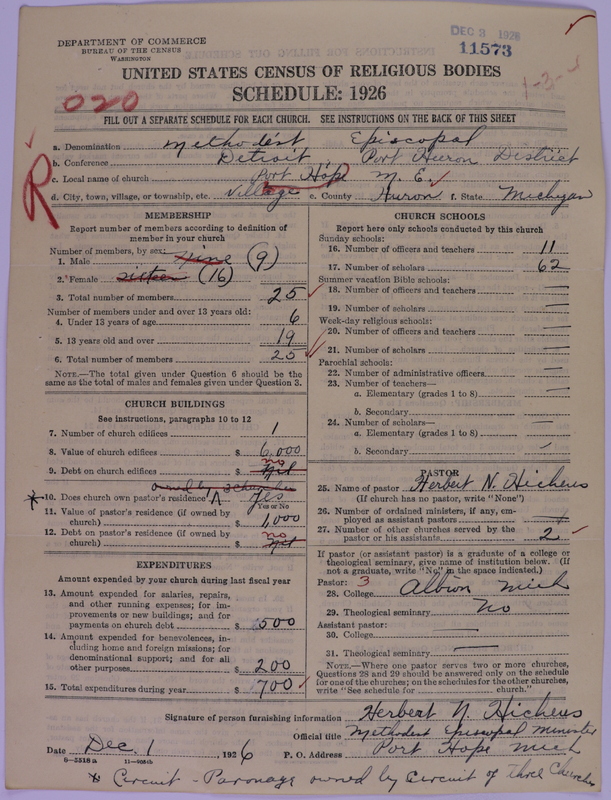 DEPARTMENT OF COMMERCE
BUREAU OF THE CENSUS
WASHINGTON
DEC 3 1926
11573
UNITED STATES CENSUS OF RELIGIOUS BODIES
SCHEDULE: 1926
020
1-3-
FILL OUT A SEPARATE SCHEDULE FOR EACH CHURCH. SEE INSTRUCTIONS ON THE BACK OF THIS SHEET
R
a. Denomination Methodist Episcopal
b. Conference Detroit, Port Huron District
c. Local name of church Port Hope M. E.
d. City, town, village, or township, etc. Village e. County Huron f. State Michigan
MEMBERSHIP
Report number of members according to definition of member in your church
Number of members, by sex:
1. Male nine (9)
2. Female sixteen (16)
3. Total number of members 25
Number of members under and over 13 years old:
4. Under 13 years of age 6
5. 13 years old and over 19
6. Total number of members 25
NOTE.—The total given under Question 6 should be the same as the total of males and females given under Question 3.
CHURCH BUILDINGS
See instructions, paragraphs 10 to 12
7. Number of church edifices 1
8. Value of church edifices $ 6,000
9. Debt on church edifices $ Nil no
owned by 3 churches
*10. Does church own pastor's residence yes
Yes or No
11. Value of pastor's residence (if owned by church) $ 1,000
12. Debt on pastor's residence (if owned by church) $ Nil no
EXPENDITURES
Amount expended by your church during last fiscal year
13. Amount expended for salaries, repairs, and other running expenses; for improvements or new buildings; and for payments on church debt $ 500
14. Amount expended for benevolences, including home and foreign missions; for denominational support; and for all other purposes $ 200
15. Total expenditures during year $ 700
CHURCH SCHOOLS
Report here only schools conducted by this church
Sunday schools:
16. Number of officers and teachers 11
17. Number of scholars 62
Summer vacation Bible schools:
18. Number of officers and teachers —
19. Number of scholars —
Week-day religious schools:
20. Number of officers and teachers —
21. Number of scholars —
Parochial schools:
22. Number of administrative officers —
23. Number of teachers—
a. Elementary (grades 1 to 8) —
b. Secondary —
24. Number of scholars—
a. Elementary (grades 1 to 8) —
b. Secondary —
PASTOR
25. Name of pastor Herbert N. Hichens
(If church has no pastor, write "None")
26. Number of ordained ministers, if any, employed as assistant pastors —
27. Number of other churches served by the pastor or his assistants 2
If pastor (or assistant pastor) is a graduate of a college or theological seminary, give name of institution below. (If not a graduate, write "No" in the space indicated.)
Pastor: 3
28. College Albion Mich
29. Theological seminary No
Assistant pastor:
30. College —
31. Theological seminary —
NOTE.—Where one pastor serves two or more churches, Questions 28 and 29 should be answered only on the schedule for one of the churches; on the schedules for the other churches, write "See schedule for church."
Signature of person furnishing information Herbert N. Hichens
Official title Methodist Episcopal Minister
Date Dec. 1, 1926 P. O. Address Port Hope Mich
* Circuit - Parsonage owned by Circuit of Three Churches